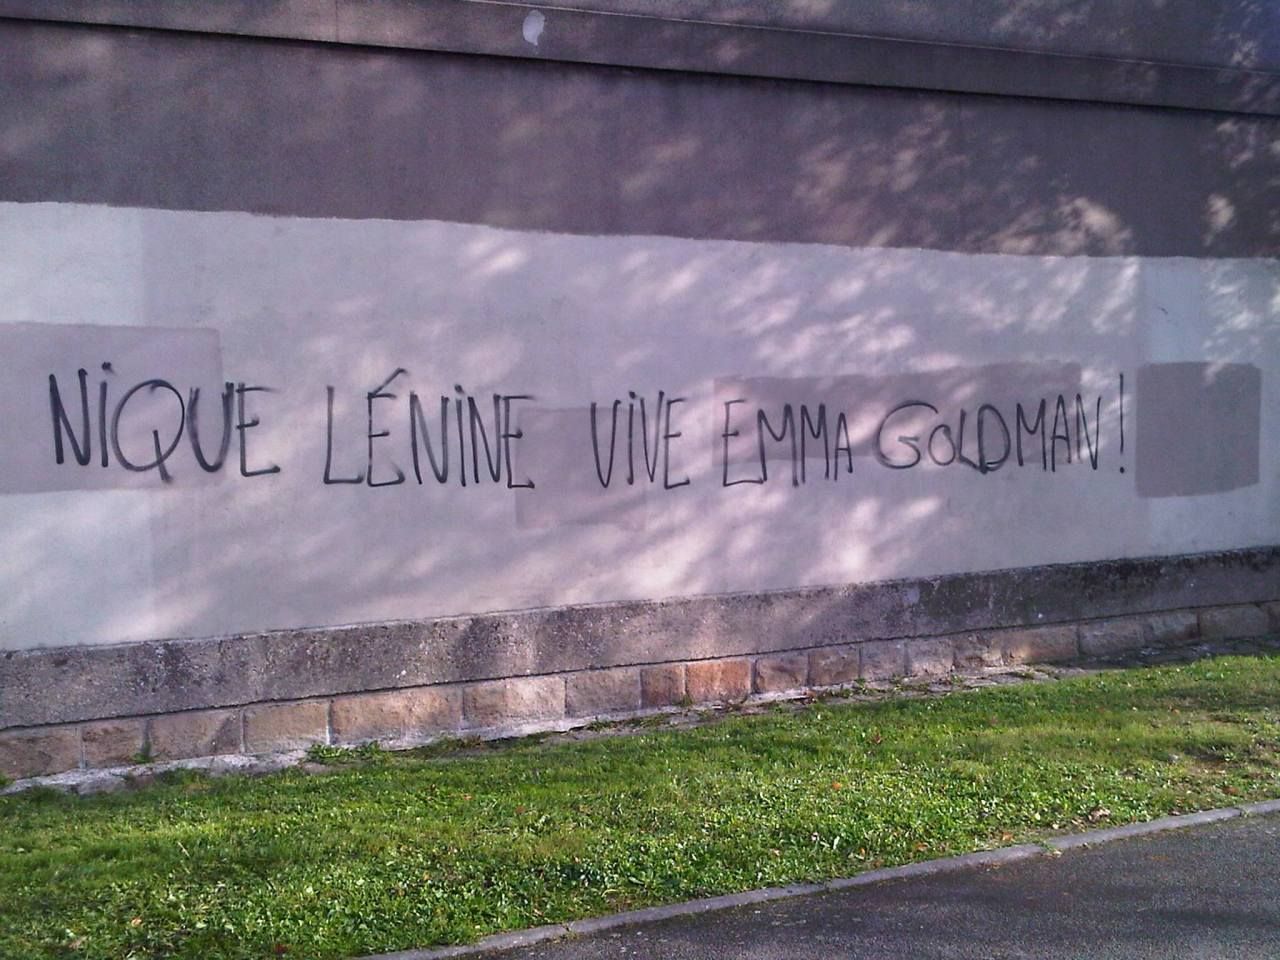 NiQUE LÉNiNE ViVE EMMA GOLDMAN !